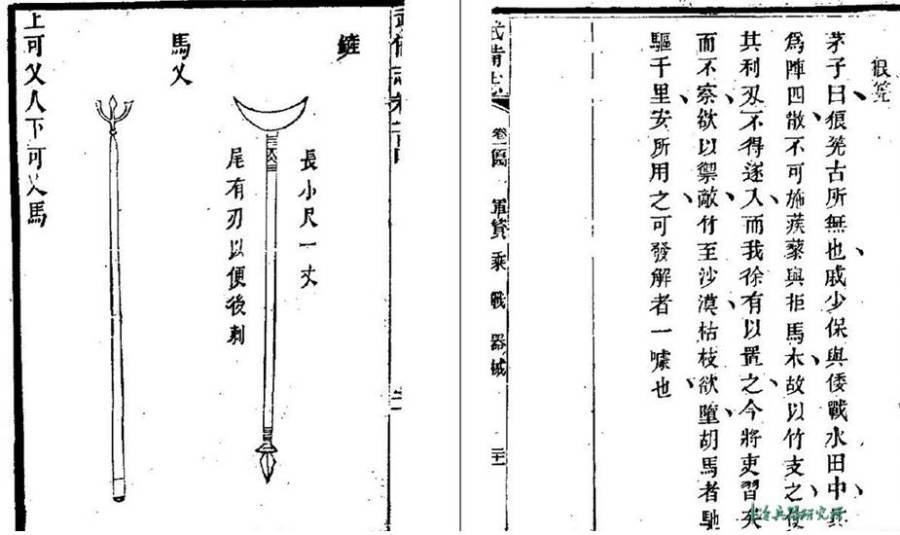 狼筅
茅子曰狼筅古所無也戚少保與倭戰水田中其
爲陣四散不可施蒺藜與拒馬木故以竹支之使
其利刃不得遂入而我徐有以置之今將吏習矣
而不察欲以禦敵竹至沙漠枯枝欲墮胡馬者馳
驅千里安所用之可發解者一噱也
武備志 軍資乘 戰 器械
鏟
長小尺一丈
尾有刃以便後刺
馬叉
上可叉人下可叉馬
兵器研究所